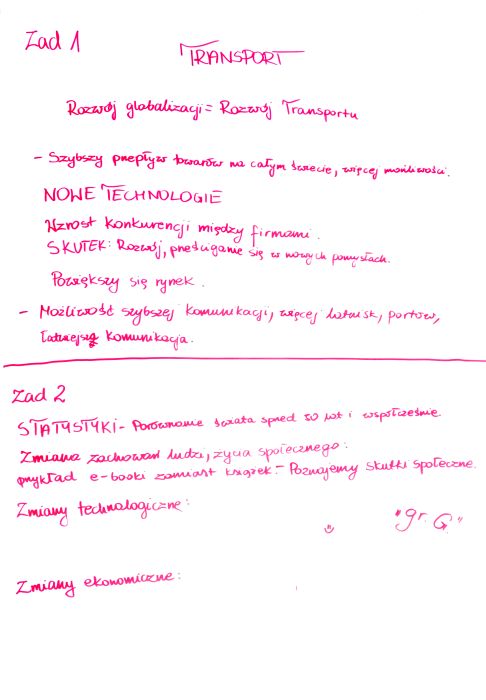 Zad 1
TRANSPORT
Rozwój globalizacji = Rozwój Transportu
- Szybszy przepływ towarów na całym świecie, więcej możliwości.
NOWE TECHNOLOGIE
Wzrost konkurencji między firmami.
SKUTEK: Rozwój, prześciganie się w nowych pomysłach.
Powiększy się rynek.
- Możliwość szybszej komunikacji, więcej lotnisk, portów,
łatwiejsza komunikacja.
Zad 2
STATYSTYKI - Porównanie świata sprzed 50 lat i współcześnie.
Zmiana zachowań ludzi, życia społecznego:
przykład e-booki zamiast książek - Poznajemy skutki społeczne.
Zmiany technologiczne:
"gr. G"
Zmiany ekonomiczne: